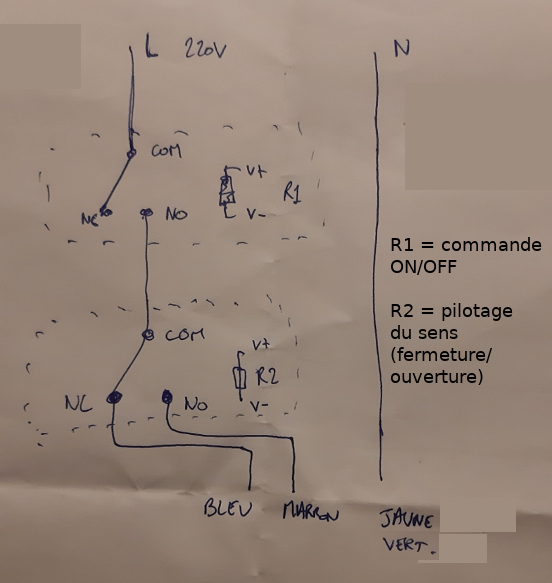 L 220V
N
COM
V+
R1
NC
NO
V-
R1 = commande
ON/OFF
R2 = pilotage
du sens
(fermeture/
ouverture)
COM
V+
R2
NC
NO
V-
BLEU MARRON
JAUNE
VERT.